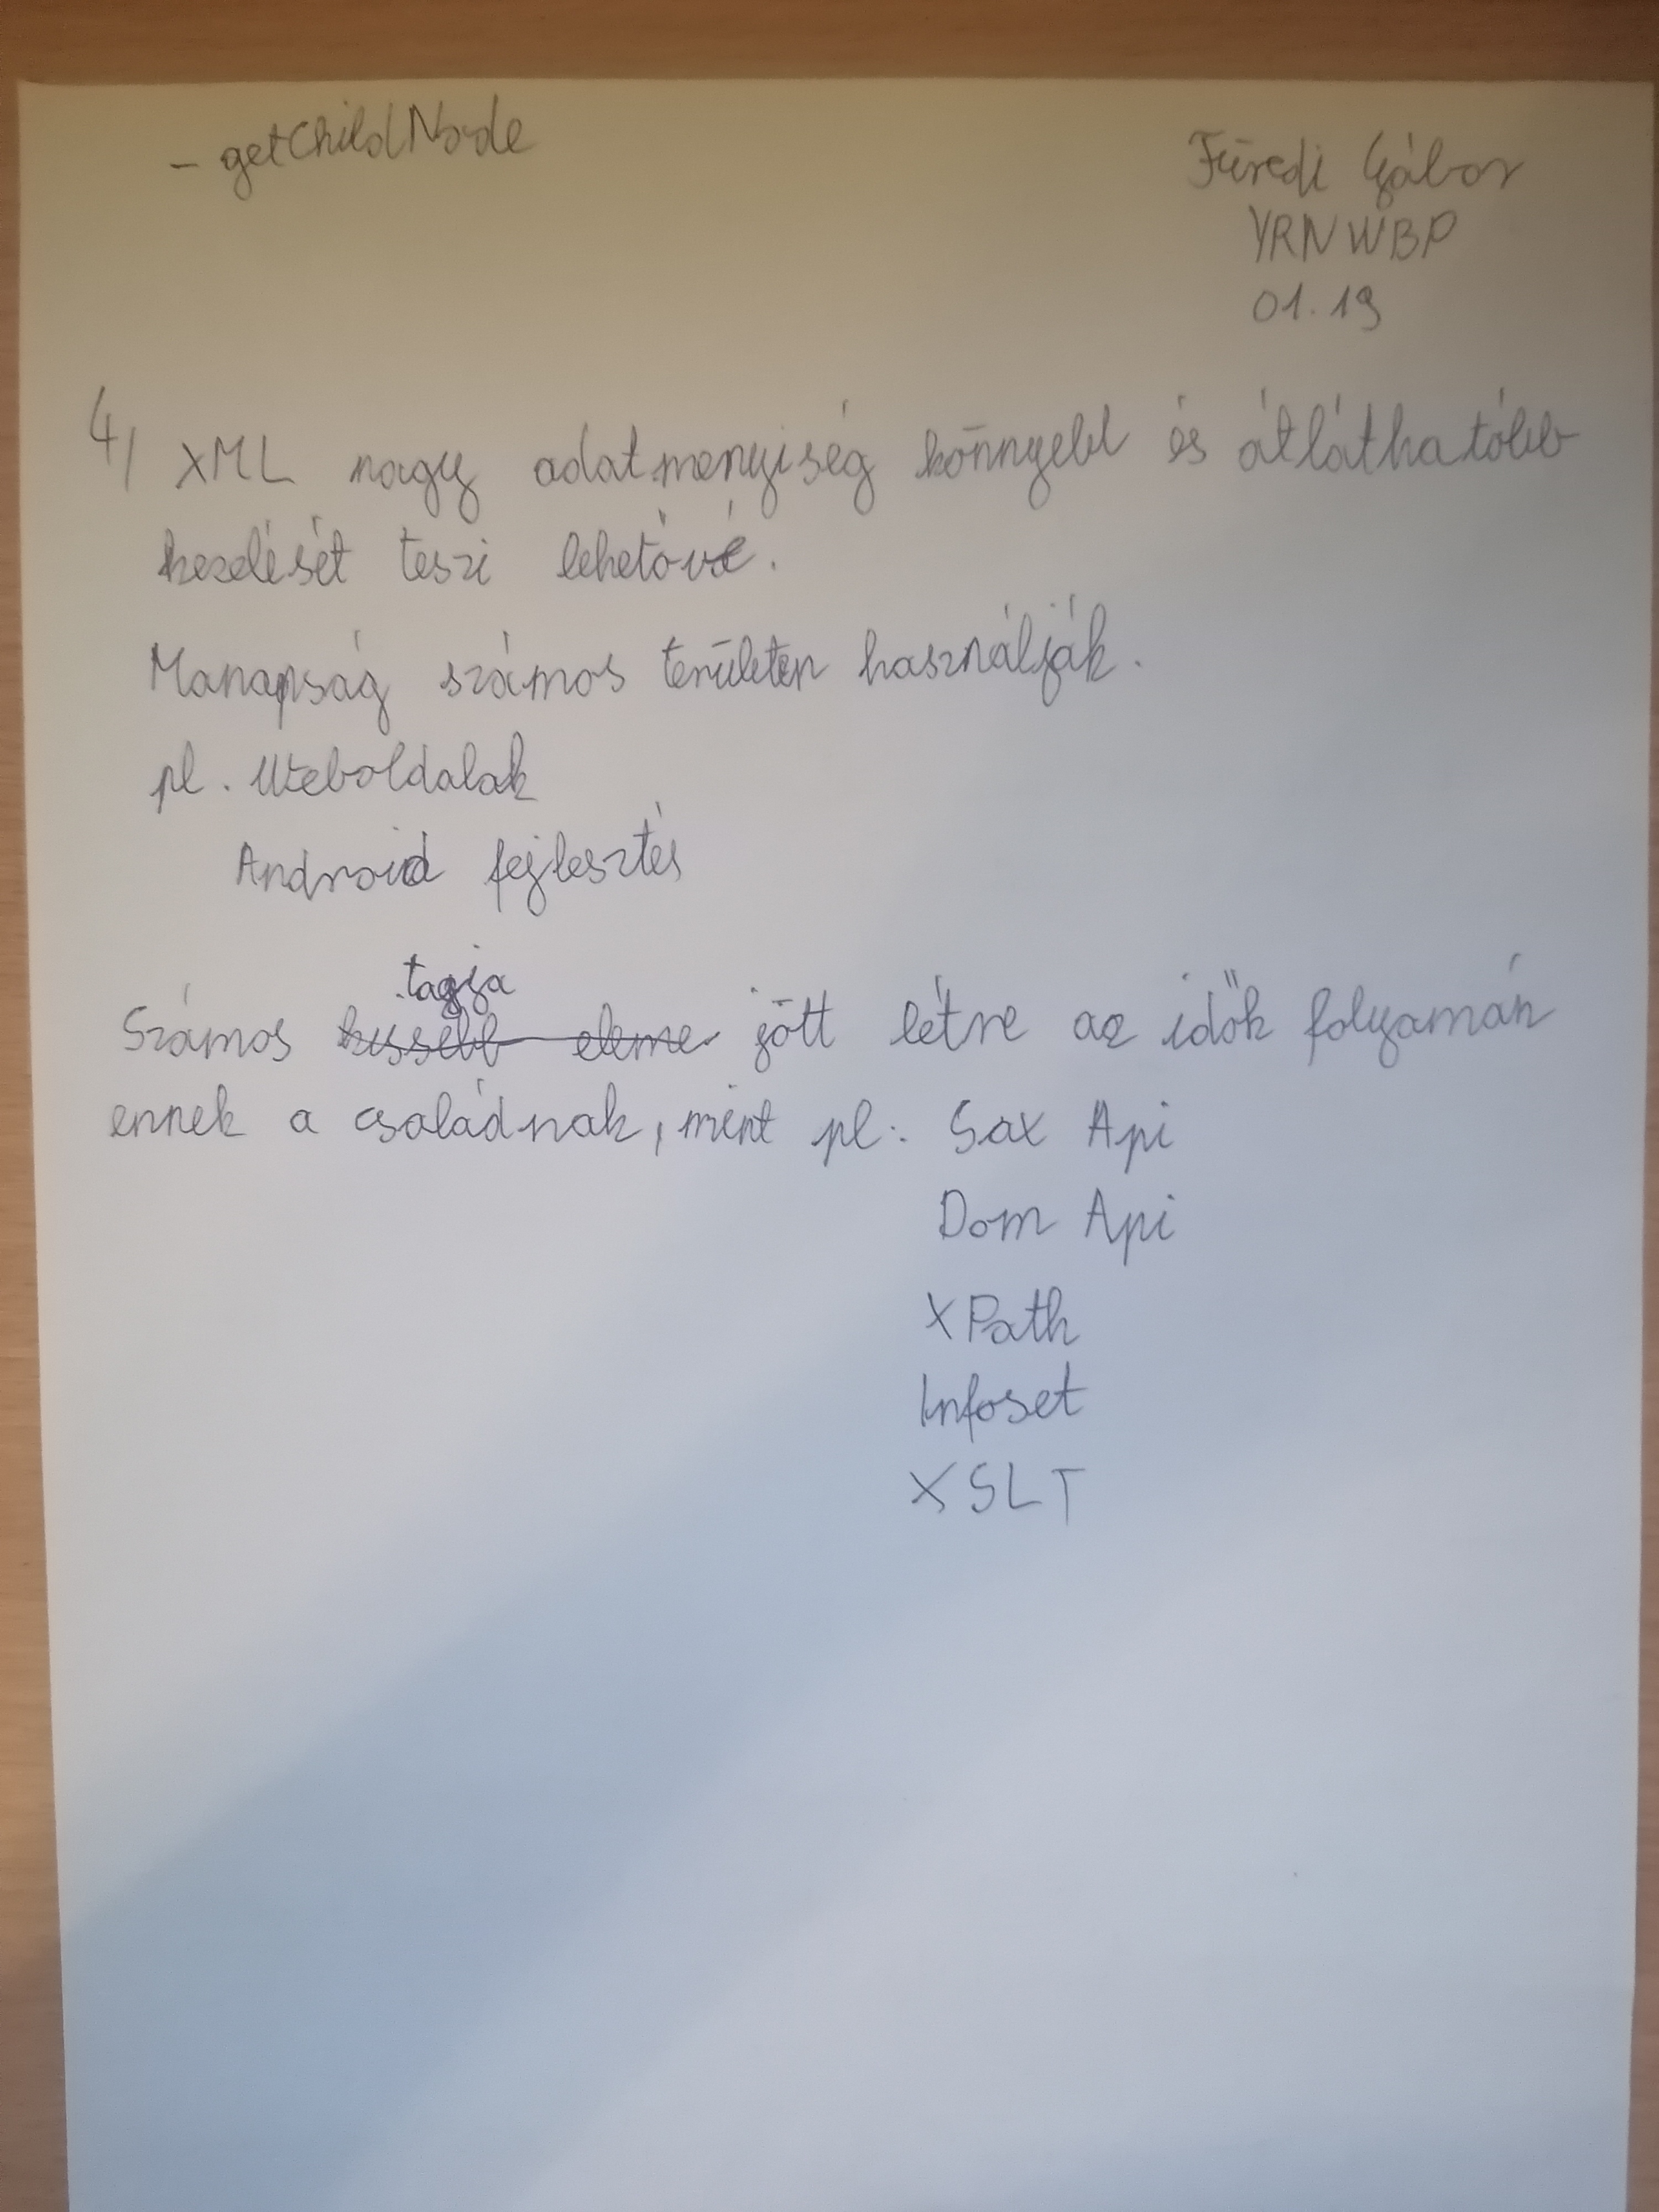 - getChildNode
Füredi Gábor
YRNWBP
01.19
4, XML nagy adatmenyiség könnyebb és átláthatóbb
kezelését teszi lehetővé.
Manapság számos területen használják.
pl. Weboldalak
Android fejlesztés
tagja
Számos kissebb eleme jött létre az idők folyamán
ennek a családnak, mint pl: Sax Api
Dom Api
XPath
Infoset
XSLT